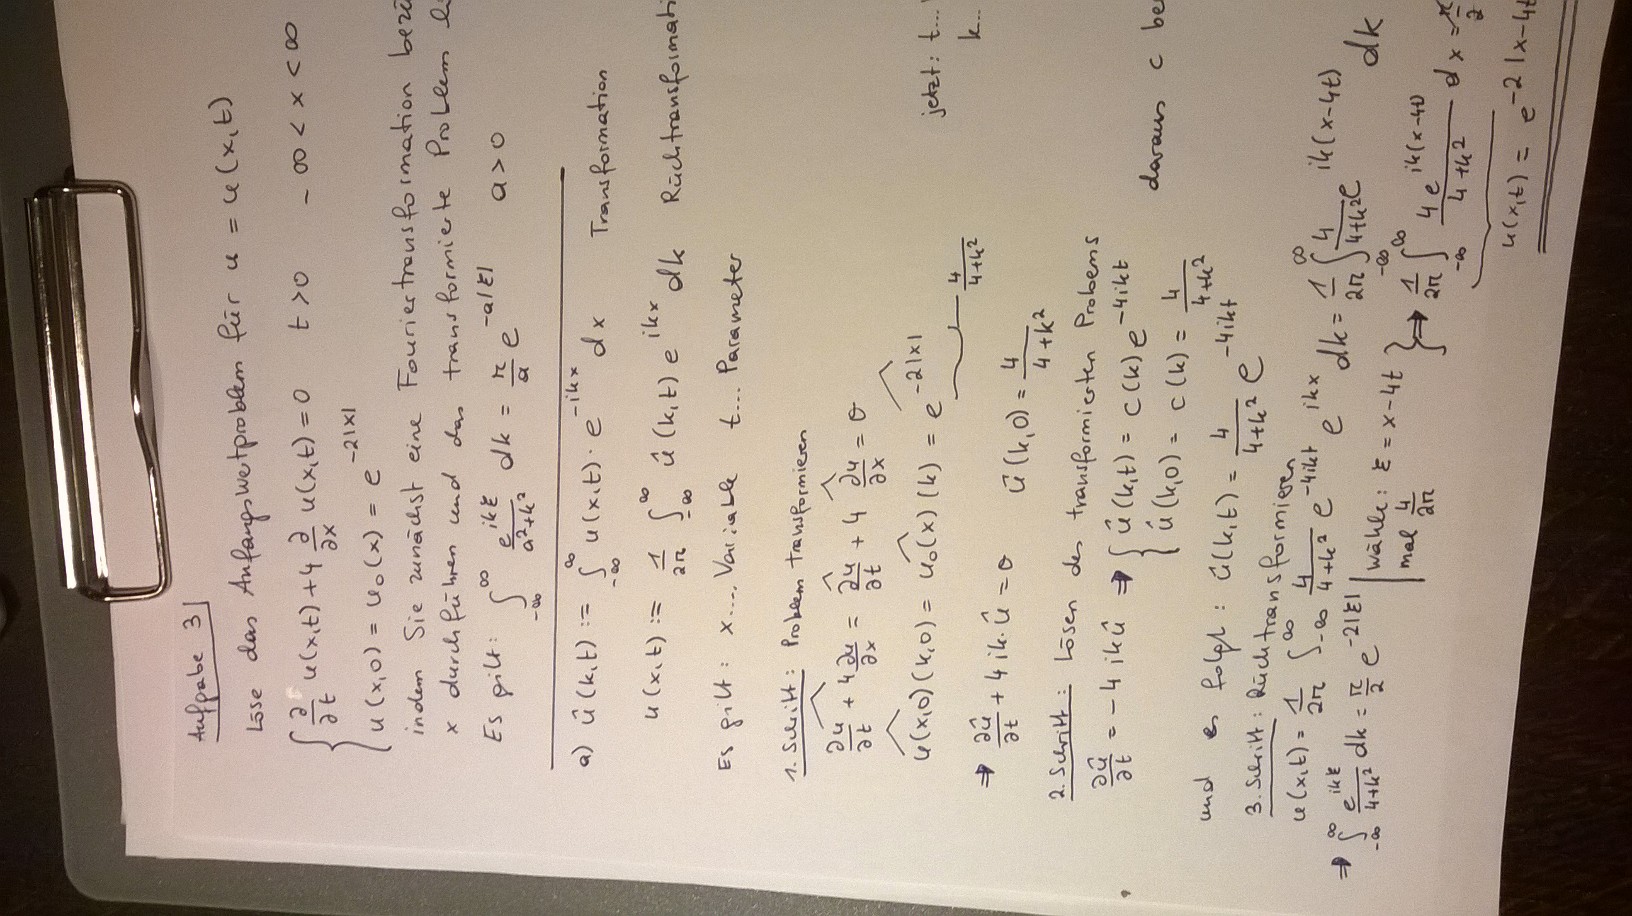 Aufgabe 3
Löse das Anfangswertproblem für u = u(x,t)
{ ∂/∂t u(x,t) + 4 ∂/∂x u(x,t) = 0 t > 0 -∞ < x < ∞
u(x,0) = u₀(x) = e^{-2|x|}
indem Sie zunächst eine Fouriertransformation
x durchführen und das transformierte Problem
Es gilt: ∫_{-∞}^{∞} e^{ikξ}/(a²+k²) dk = π/a e^{-a|ξ|} a > 0
a) û(k,t) := ∫_{-∞}^{∞} u(x,t) · e^{-ikx} dx Transformation
u(x,t) := 1/2π ∫_{-∞}^{∞} û(k,t) e^{ikx} dk Rücktransformati
Es gilt: x.... Variable t... Parameter jetzt: t...
k...
1. Schritt: Problem transformieren
\widehat{∂u/∂t + 4 ∂u/∂x} = \widehat{∂u/∂t} + 4 \widehat{∂u/∂x} = 0
\widehat{u(x,0)}(k,0) = \widehat{u₀(x)}(k) = \widehat{e^{-2|x|}}
4/(4+k²)
⇒ ∂û/∂t + 4ik·û = 0 û(k,0) = 4/(4+k²)
2. Schritt: Lösen des transformierten Probems
∂û/∂t = -4ikû ⇒ { û(k,t) = c(k) e^{-4ikt} daraus c
û(k,0) = c(k) = 4/(4+k²)
und es folgt: û(k,t) = 4/(4+k²) e^{-4ikt}
3. Schritt: Rücktransformieren
u(x,t) = 1/2π ∫_{-∞}^{∞} 4/(4+k²) e^{-4ikt} e^{ikx} dk = 1/2π ∫_{-∞}^{∞} 4/(4+k²) e^{ik(x-4t)} dk
⇒ ∫_{-∞}^{∞} e^{ikξ}/(4+k²) dk = π/2 e^{-2|ξ|} | wähle: ξ = x-4t } ⇒ 1/2π ∫_{-∞}^{∞} 4e^{ik(x-4t)}/(4+k²) dx =
mal 4/2π
u(x,t) = e^{-2|x-4t